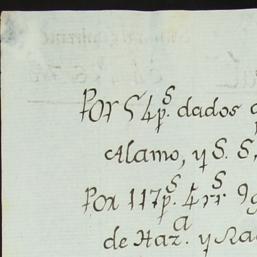 Por 54 p.s dados
Alamo, y S. S.
Por 117 p.s 4 rr.s
de Haz.a y Ra